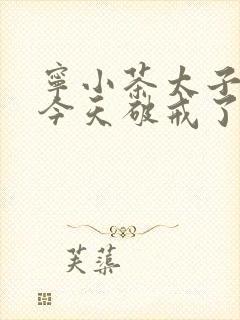 寧小茶太子
今天破戒了
芙蕖